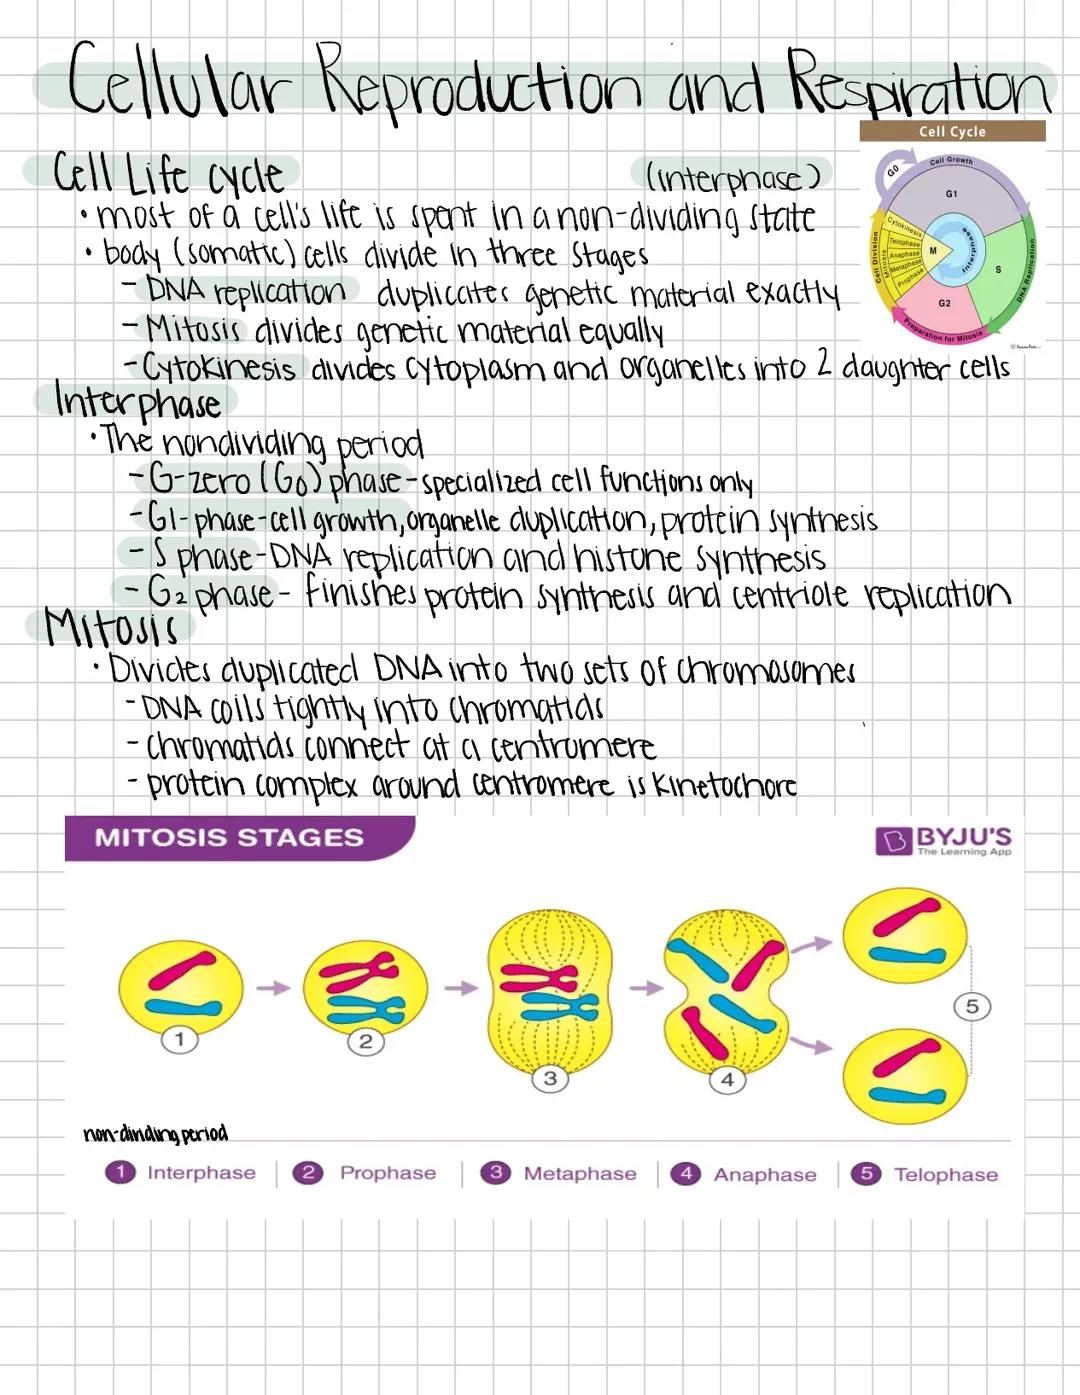 Cellular Reproduction and Respiration
Cell Cycle
Cell Life cycle
(interphase)
• most of a cell's life is spent in a non-dividing state
• body (somatic) cells divide in three stages
- DNA replication duplicates genetic material exactly
- Mitosis divides genetic material equally
- Cytokinesis divides cytoplasm and organelles into 2 daughter cells
G0
Cell Growth
G1
Cytokinesis
Telophase
Anaphase
Metaphase
Prophase
Mitosis
Cell Division
M
Interphase
S
DNA Replication
G2
Preparation for Mitosis
Interphase
• The nondividing period
- G-zero (G0) phase - specialized cell functions only
- G1-phase-cell growth, organelle duplication, protein synthesis
- S phase-DNA replication and histone synthesis
- G2 phase - finishes protein synthesis and centriole replication
Mitosis
• Divides duplicated DNA into two sets of chromosomes
- DNA coils tightly into chromatids
- chromatids connect at a centromere
- protein complex around centromere is kinetochore
MITOSIS STAGES
BYJU'S
The Learning App
1
2
3
4
5
non-dividing period
1 Interphase
2 Prophase
3 Metaphase
4 Anaphase
5 Telophase